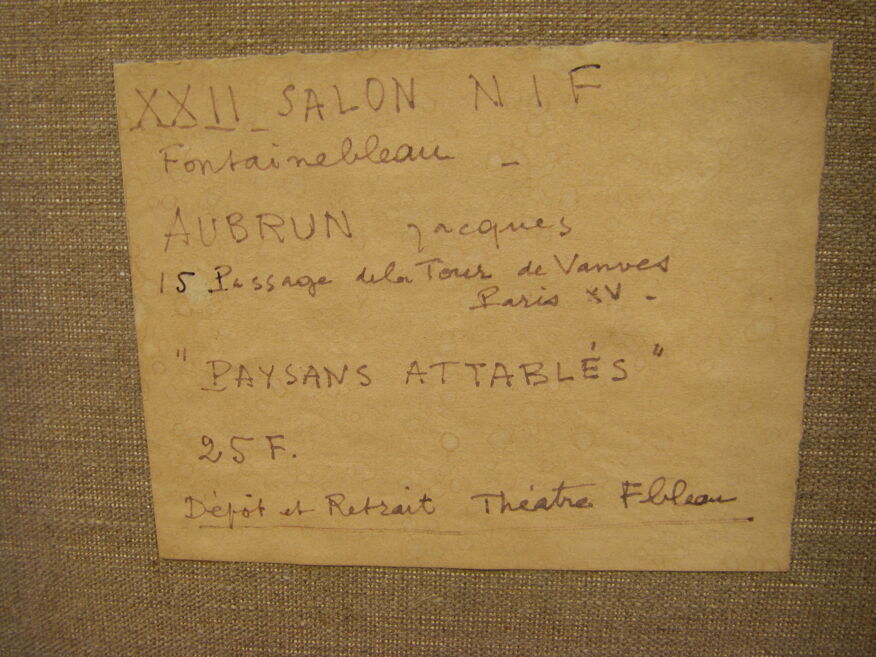 XXII_SALON NIF
Fontainebleau -
AUBRUN Jacques
15 Passage de la Tour de Vanves
Paris XV -
"PAYSANS ATTABLÉS"
25F.
Dépôt et Retrait Théatre Fbleau